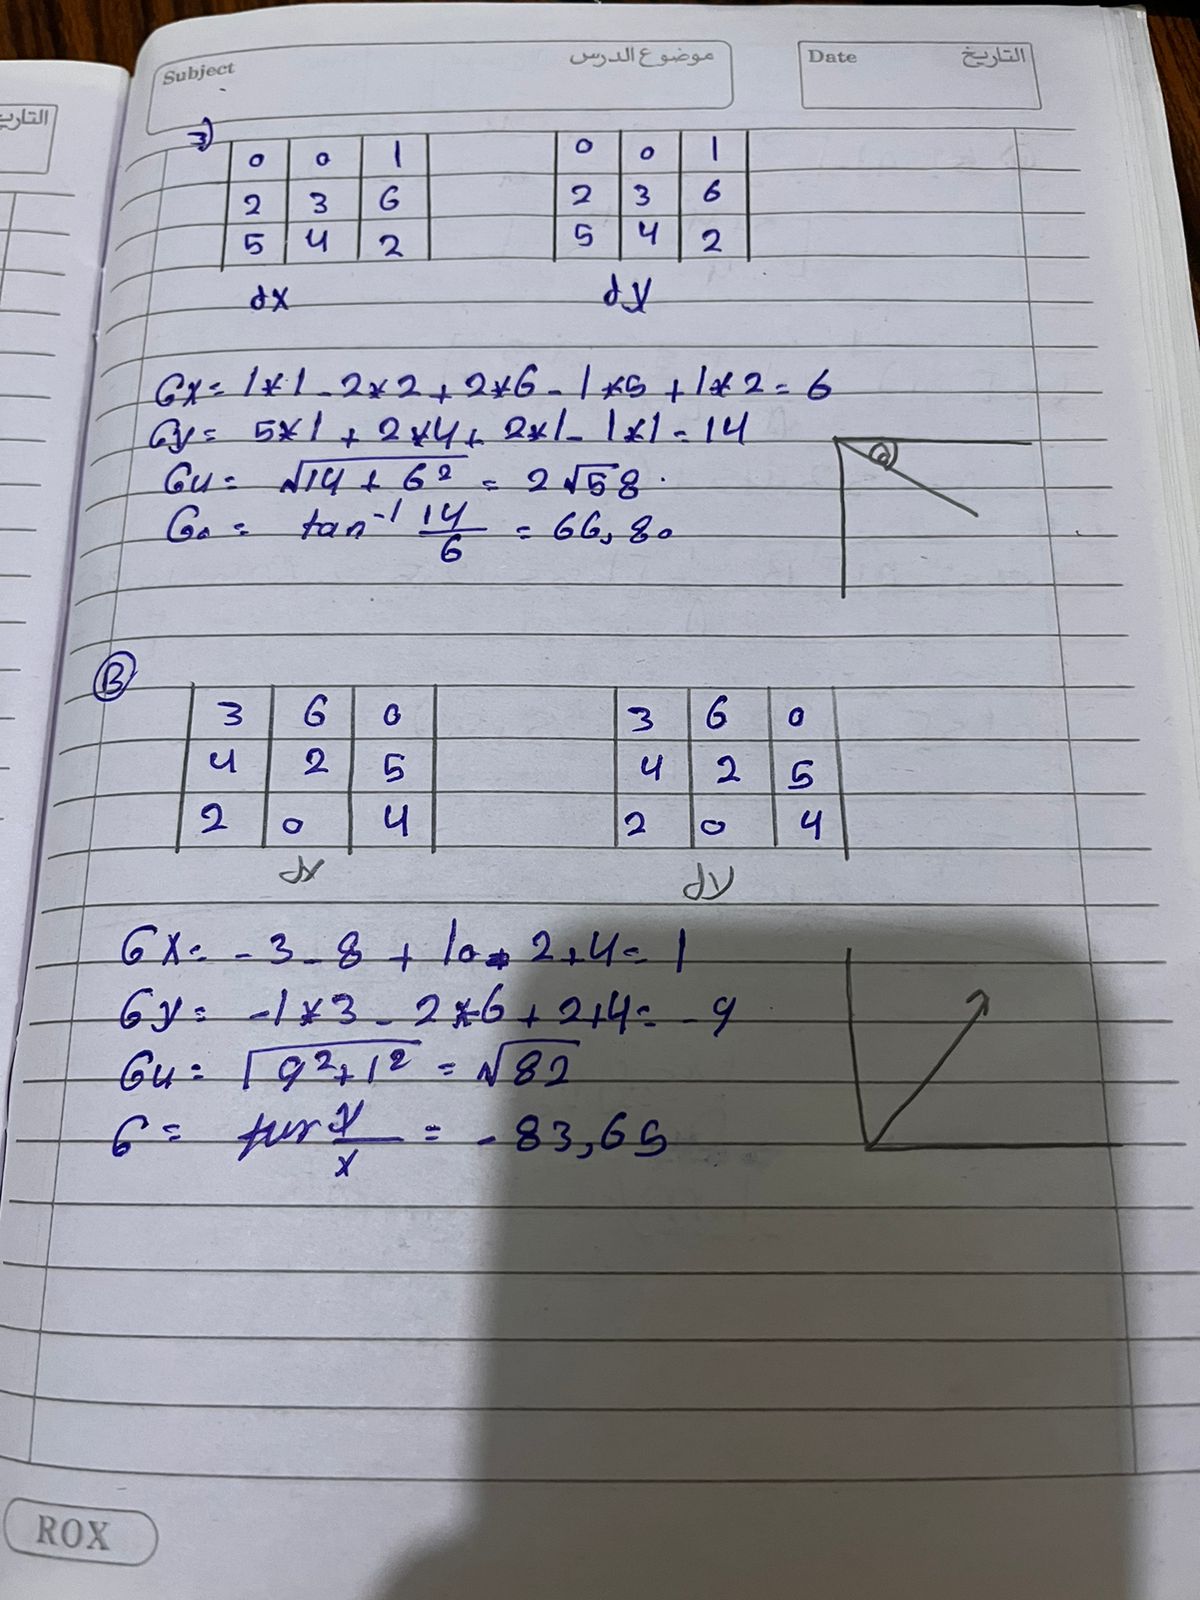 التاريخ
Subject موضوع الدرس
Date التاريخ
3)
0 0 1
2 3 6
5 4 2
dx
0 0 1
2 3 6
5 4 2
dy
Gx = 1*1 - 2*2 + 2*6 - 1*5 + 1*2 = 6
Gy = 5*1 + 2*4 + 2*1 - 1*1 = 14
GM = √14 + 6² = 2√58.
Go = tan⁻¹ 14/6 = 66,80
B
3 6 0
4 2 5
2 0 4
dx
3 6 0
4 2 5
2 0 4
dy
Gx = -3 - 8 + 10 - 2 + 4 = 1
Gy = -1*3 - 2*6 + 2+4 = -9
GM = √9²+1² = √82
G = y/x = -83,65
ROX